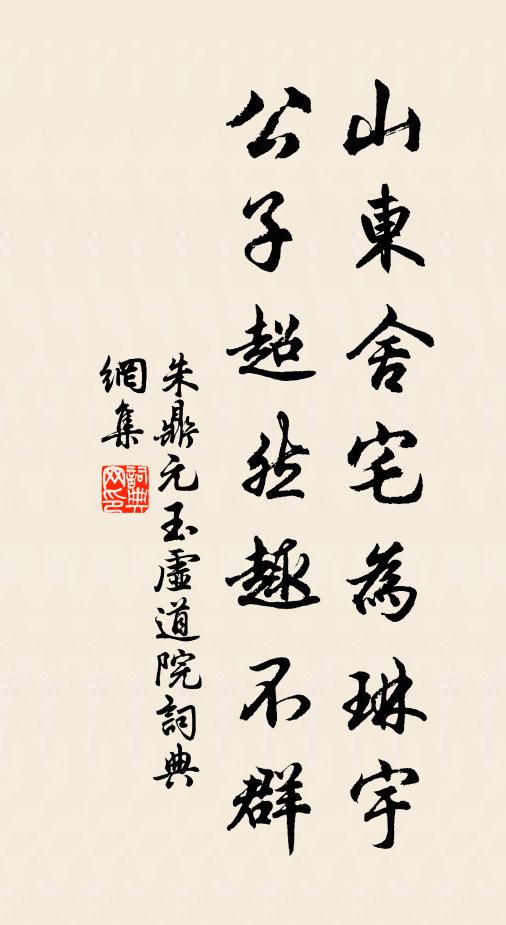 山東舍宅為琳宇
公子超然趣不群
朱鼎元玉虛道院詞典
網集
詞典網印